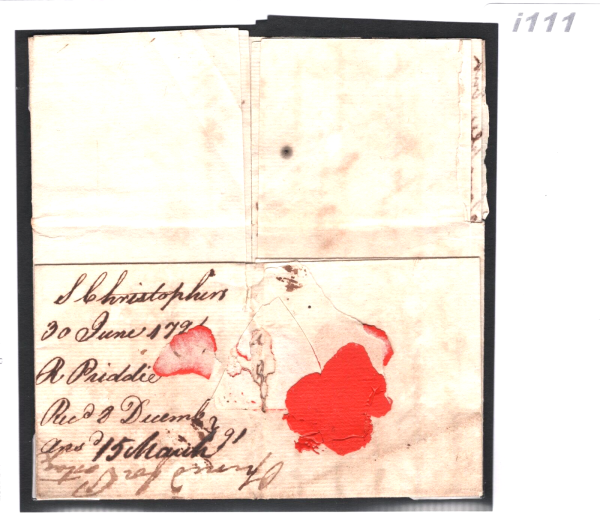 i111
S Christophers
30 June 1791
R Priddie
Rec'd 3 Decemb
Ans'd 15 March 91